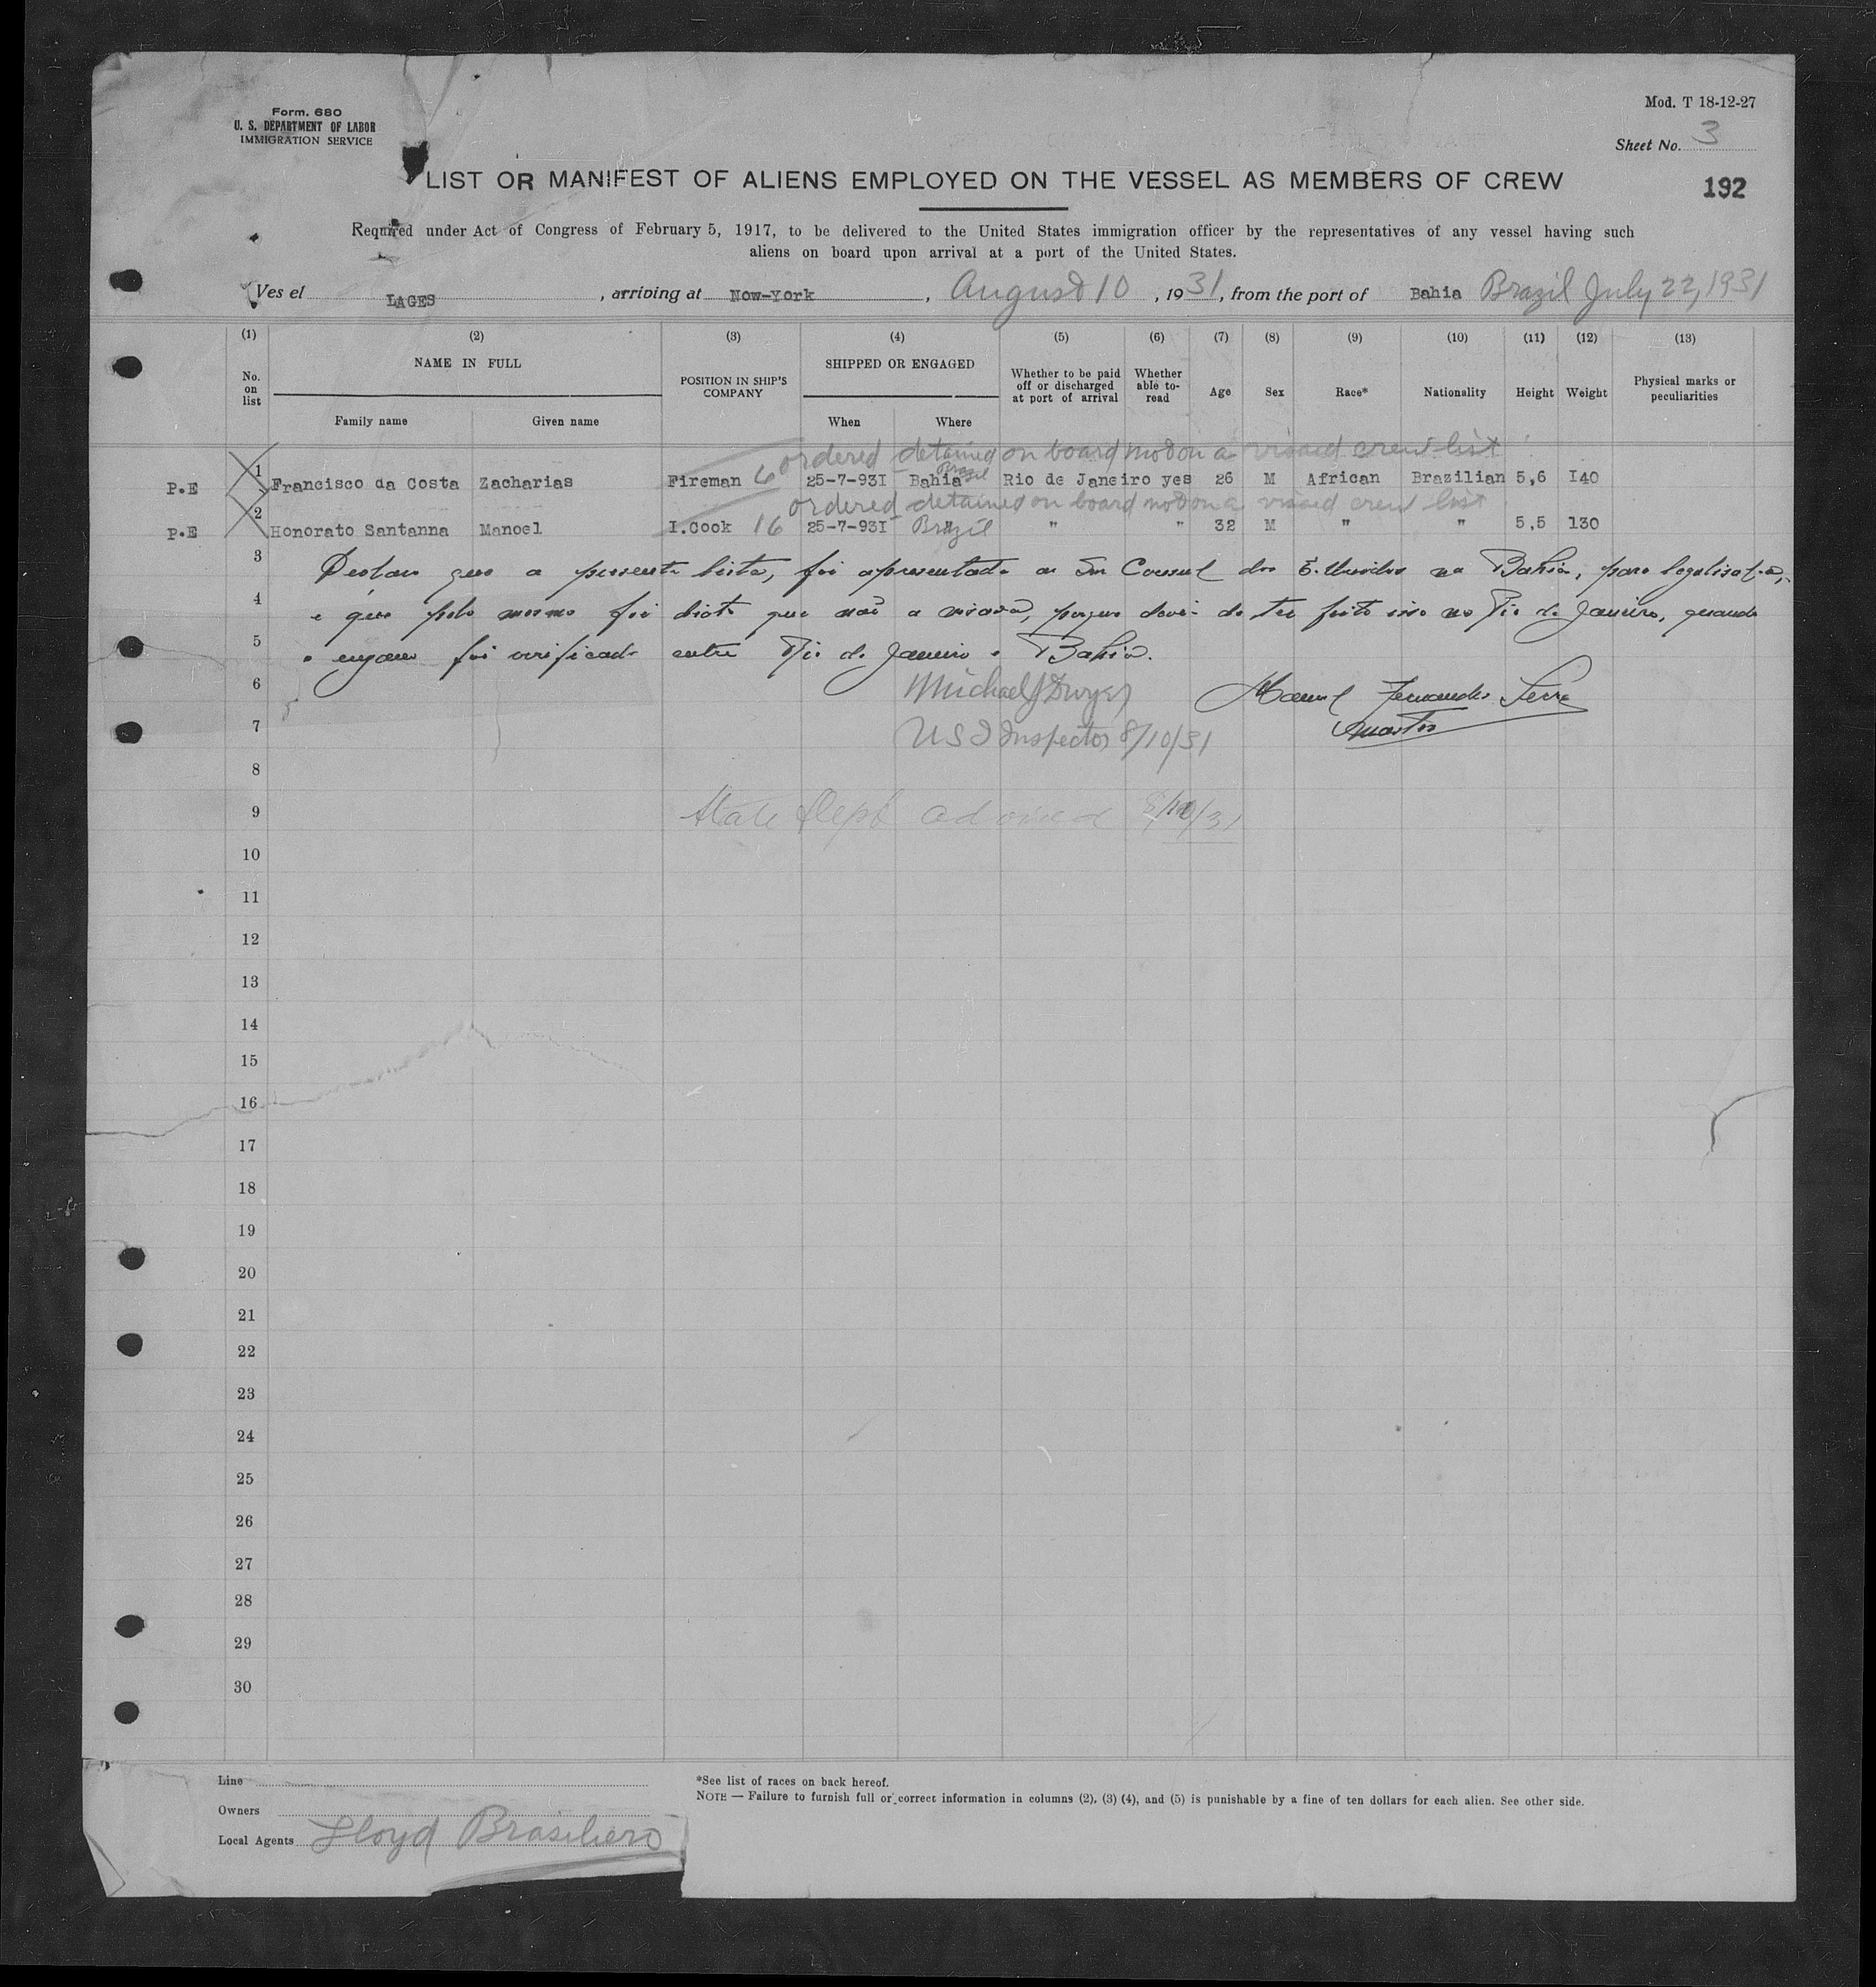 Form. 680
U. S. DEPARTMENT OF LABOR
IMMIGRATION SERVICE
Mod. T 18-12-27
Sheet No. 3
LIST OR MANIFEST OF ALIENS EMPLOYED ON THE VESSEL AS MEMBERS OF CREW
192
Required under Act of Congress of February 5, 1917, to be delivered to the United States immigration officer by the representatives of any vessel having such
aliens on board upon arrival at a port of the United States.
Ves el LAGES , arriving at Now-York , August 10 , 1931, from the port of Bahia Brazil July 22, 1931
(1) (2) (3) (4) (5) (6) (7) (8) (9) (10) (11) (12) (13)
No. on list NAME IN FULL Family name Given name POSITION IN SHIP'S COMPANY SHIPPED OR ENGAGED When Where Whether to be paid off or discharged at port of arrival Whether able to- read Age Sex Race* Nationality Height Weight Physical marks or peculiarities
ordered detained on board not on a visaed crew list
P.E 1 Francisco da Costa Zacharias Fireman 6 25-7-931 Bahia Brazil Rio de Janeiro yes 26 M African Brazilian 5,6 140
ordered detained on board not on a visaed crew list
P.E 2 Honorato Santanna Manoel I.Cook 16 25-7-931 Brazil " " 32 M " " 5,5 130
3 Declaro que a presente lista, foi apresentada ao Snr Consul dos E. Unidos na Bahia, para
4 e que pelo mesmo foi dicto que não a visava, porque devia de ter feito isso no Rio de Janeiro, quando
5 o engano foi verificado entre Rio de Janeiro e Bahia.
6 Michael J Dwyer Manoel Fernandes
7 U S I Inspector 8/10/31 Master
8
9 State Dept advised 8/10/31
10
11
12
13
14
15
16
17
18
19
20
21
22
23
24
25
26
27
28
29
30
Line
Owners
Local Agents Lloyd Brasiliero
*See list of races on back hereof.
NOTE — Failure to furnish full or correct information in columns (2), (3) (4), and (5) is punishable by a fine of ten dollars for each alien. See other side.